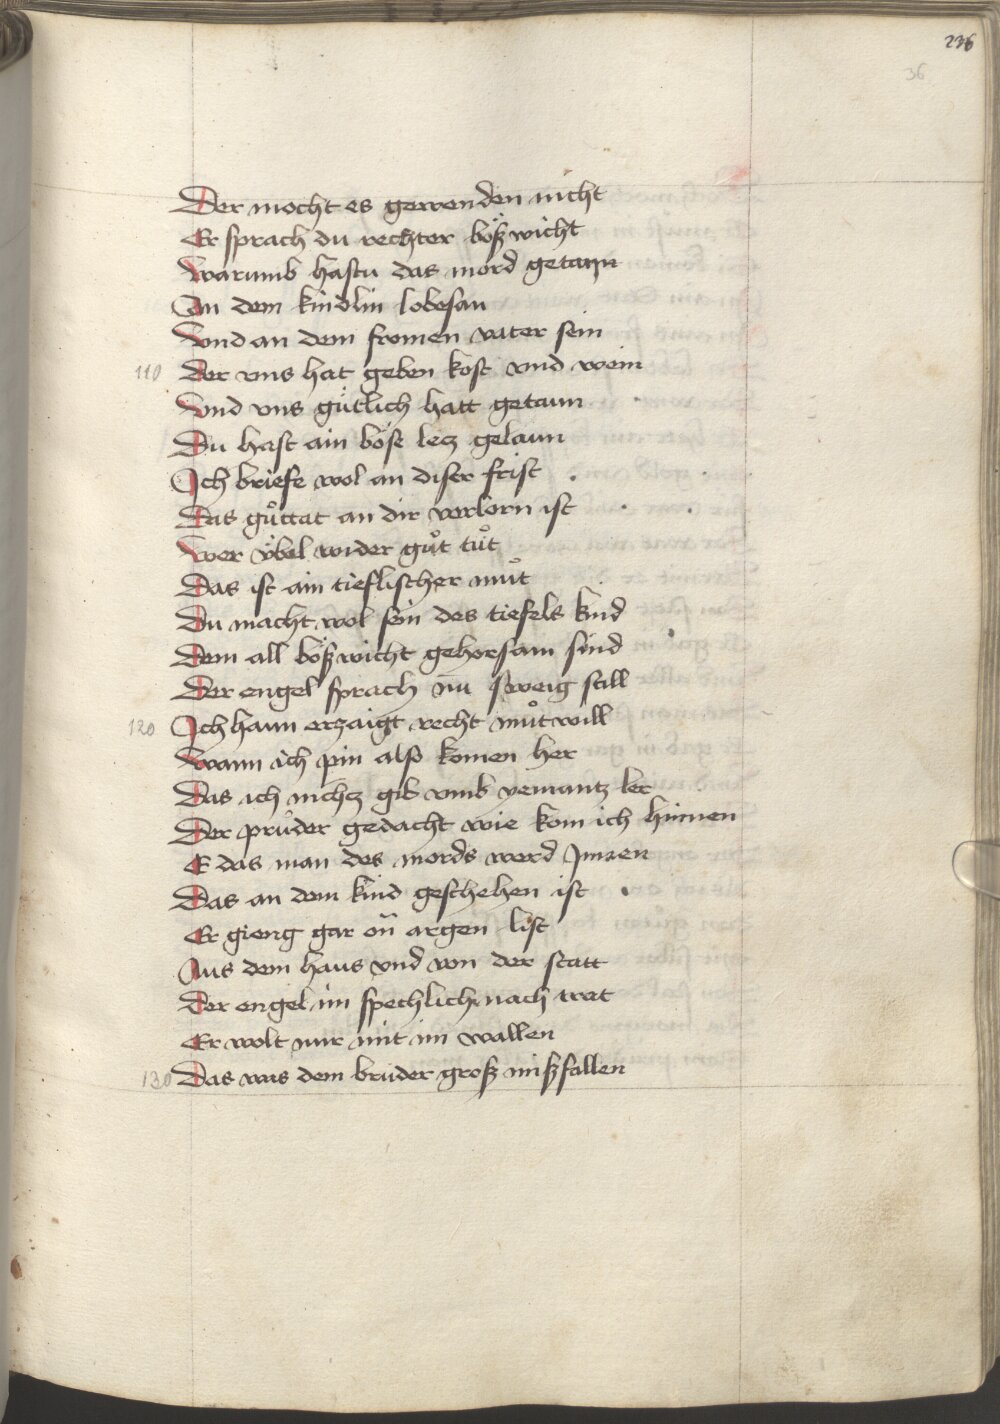 236
36
Der mocht es gewenden nicht
Er sprach du rechter bößwicht
Warumb hastu das mord getaun
An dem kindlin lobesan
Vnd an dem fromen vater sein
110 Der vns hat geben kost vnd wein
Vnd vns gütlich hatt getaun
Du hast ain böse lecz gelaun
Ich briefe wol an diser frist
Das gůttat an dir verlorn ist
Wer v̈bel wider gůt tůt
Das ist ain tieflischer můt
Du macht wol sein des tiefels kind
Dem all bößwicht gehorsam sind
Der engel sprach nu sweig still
120 Ich haun erzaigt recht můtwill
Wann ich pin also komen her
Das ich nichcz gib vmb yemantz ler
Der průder gedacht wie kom ich hinnen
E das man des mords werd Innen
Das an dem kind geschehen ist
Er gieng gar on argen list
Aus dem haus vnd von der statt
Der engel im spechlich nach trat
Er wolt nur mit im wallen
130 Das was dem bruder groß mißfallen